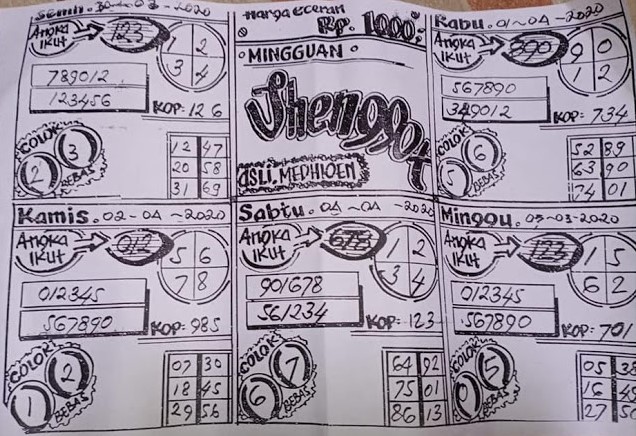 Senin. 30-03-2020
ANGKA IKUT
123
1 2
3 4
789012
123456
KOP: 126
COLOK BEBAS
2 3
12 47
20 58
31 69
Harga eceran
Rp. 1000,-
MINGGUAN
Shenggot
ASLI. MEDHIOEN
Rabu. 01-04-2020
ANGKA IKUT
890
9 0
1 2
567890
349012
KOP: 734
COLOK BEBAS
5 6
52 89
63 90
74 01
Kamis. 02-04-2020
ANGKA IKUT
012
5 6
7 8
012345
567890
KOP: 985
COLOK BEBAS
1 2
07 30
18 45
29 56
Sabtu. 04-04-2020
ANGKA IKUT
678
1 2
3 4
901678
561234
KOP: 123
COLOK BEBAS
6 7
64 92
75 01
86 13
Minggu. 05-03-2020
ANGKA IKUT
123
1 5
6 2
012345
567890
KOP: 701
COLOK BEBAS
0 5
05 38
16
27